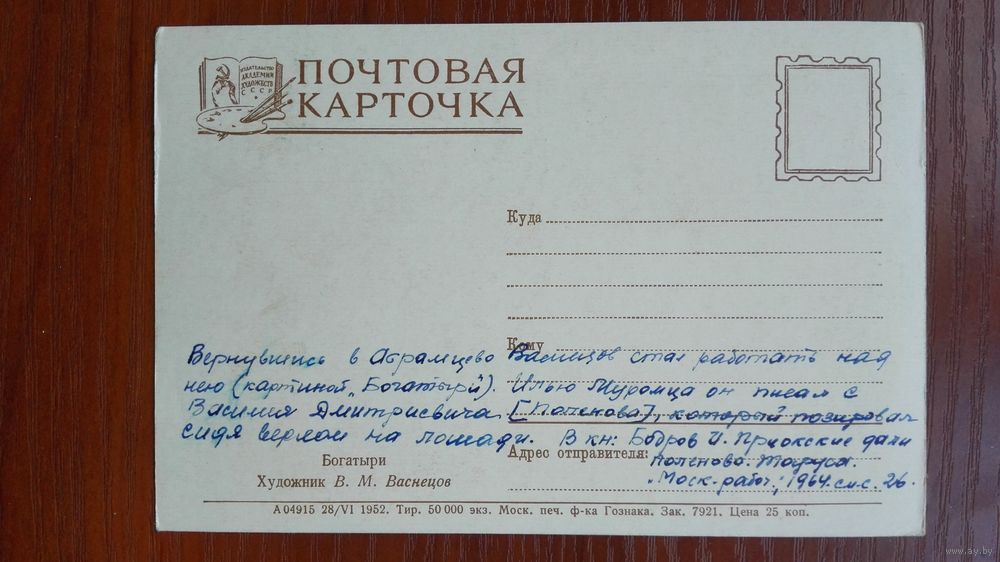 ИЗДАТЕЛЬСТВО
АКАДЕМИИ
ХУДОЖЕСТВ
СССР
ПОЧТОВАЯ
КАРТОЧКА
Куда
Кому
Вернувшись в Абрамцево Васнецов стал работать над
нею (картиной „Богатыри"). Илью Муромца он писал с
Василия Дмитриевича [Поленова], который позировал
сидя верхом на лошади. В кн: Бодров И. Приокские дали
Поленово. Таруса.
„Моск. рабоч.", 1964. см. с. 26.
Адрес отправителя:
Богатыри
Художник В. М. Васнецов
А 04915 28/VI 1952. Тир. 50 000 экз. Моск. печ. ф-ка Гознака. Зак. 7921. Цена 25 коп.
www.ay.by